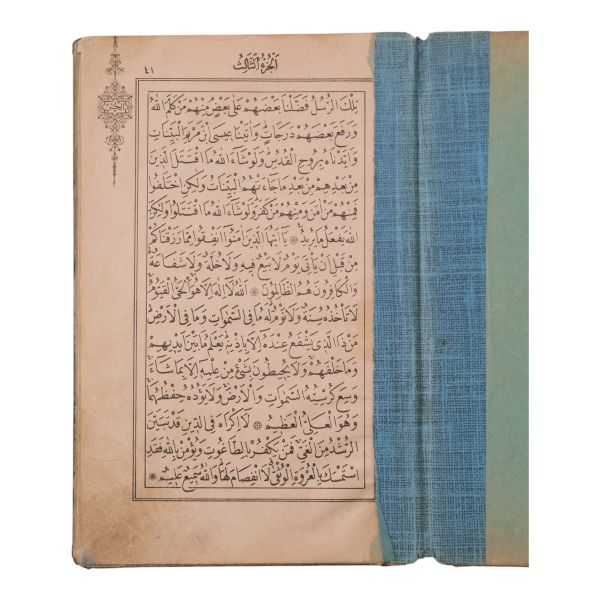 الجزء الثالث
٤١
تِلْكَ الرُّسُلُ فَضَّلْنَا بَعْضَهُمْ عَلٰى بَعْضٍ مِنْهُمْ مَنْ كَلَّمَ اللّٰهُ
وَرَفَعَ بَعْضَهُمْ دَرَجَاتٍ وَاٰتَيْنَا عِيسَى ابْنَ مَرْيَمَ الْبَيِّنَاتِ
وَاَيَّدْنَاهُ بِرُوحِ الْقُدُسِ وَلَوْ شَاءَ اللّٰهُ مَا اقْتَتَلَ الَّذِينَ
مِنْ بَعْدِهِمْ مِنْ بَعْدِ مَا جَاءَتْهُمُ الْبَيِّنَاتُ وَلٰكِنِ اخْتَلَفُوا
فَمِنْهُمْ مَنْ اٰمَنَ وَمِنْهُمْ مَنْ كَفَرَ وَلَوْ شَاءَ اللّٰهُ مَا اقْتَتَلُوا وَلٰكِنَّ
اللّٰهَ يَفْعَلُ مَا يُرِيدُ يَا اَيُّهَا الَّذِينَ اٰمَنُوا اَنْفِقُوا مِمَّا رَزَقْنَاكُمْ
مِنْ قَبْلِ اَنْ يَأْتِيَ يَوْمٌ لَا بَيْعٌ فِيهِ وَلَا خُلَّةٌ وَلَا شَفَاعَةٌ
وَالْكَافِرُونَ هُمُ الظَّالِمُونَ اَللّٰهُ لَا اِلٰهَ اِلَّا هُوَ الْحَيُّ الْقَيُّومُ
لَا تَأْخُذُهُ سِنَةٌ وَلَا نَوْمٌ لَهُ مَا فِي السَّمٰوَاتِ وَمَا فِي الْاَرْضِ
مَنْ ذَا الَّذِي يَشْفَعُ عِنْدَهُ اِلَّا بِاِذْنِهِ يَعْلَمُ مَا بَيْنَ اَيْدِيهِمْ
وَمَا خَلْفَهُمْ وَلَا يُحِيطُونَ بِشَيْءٍ مِنْ عِلْمِهِ اِلَّا بِمَا شَاءَ
وَسِعَ كُرْسِيُّهُ السَّمٰوَاتِ وَالْاَرْضَ وَلَا يَؤُدُهُ حِفْظُهُمَا
وَهُوَ الْعَلِيُّ الْعَظِيمُ لَا اِكْرَاهَ فِي الدِّينِ قَدْ تَبَيَّنَ
الرُّشْدُ مِنَ الْغَيِّ فَمَنْ يَكْفُرْ بِالطَّاغُوتِ وَيُؤْمِنْ بِاللّٰهِ فَقَدِ
اسْتَمْسَكَ بِالْعُرْوَةِ الْوُثْقٰى لَا انْفِصَامَ لَهَا وَاللّٰهُ سَمِيعٌ عَلِيمٌ